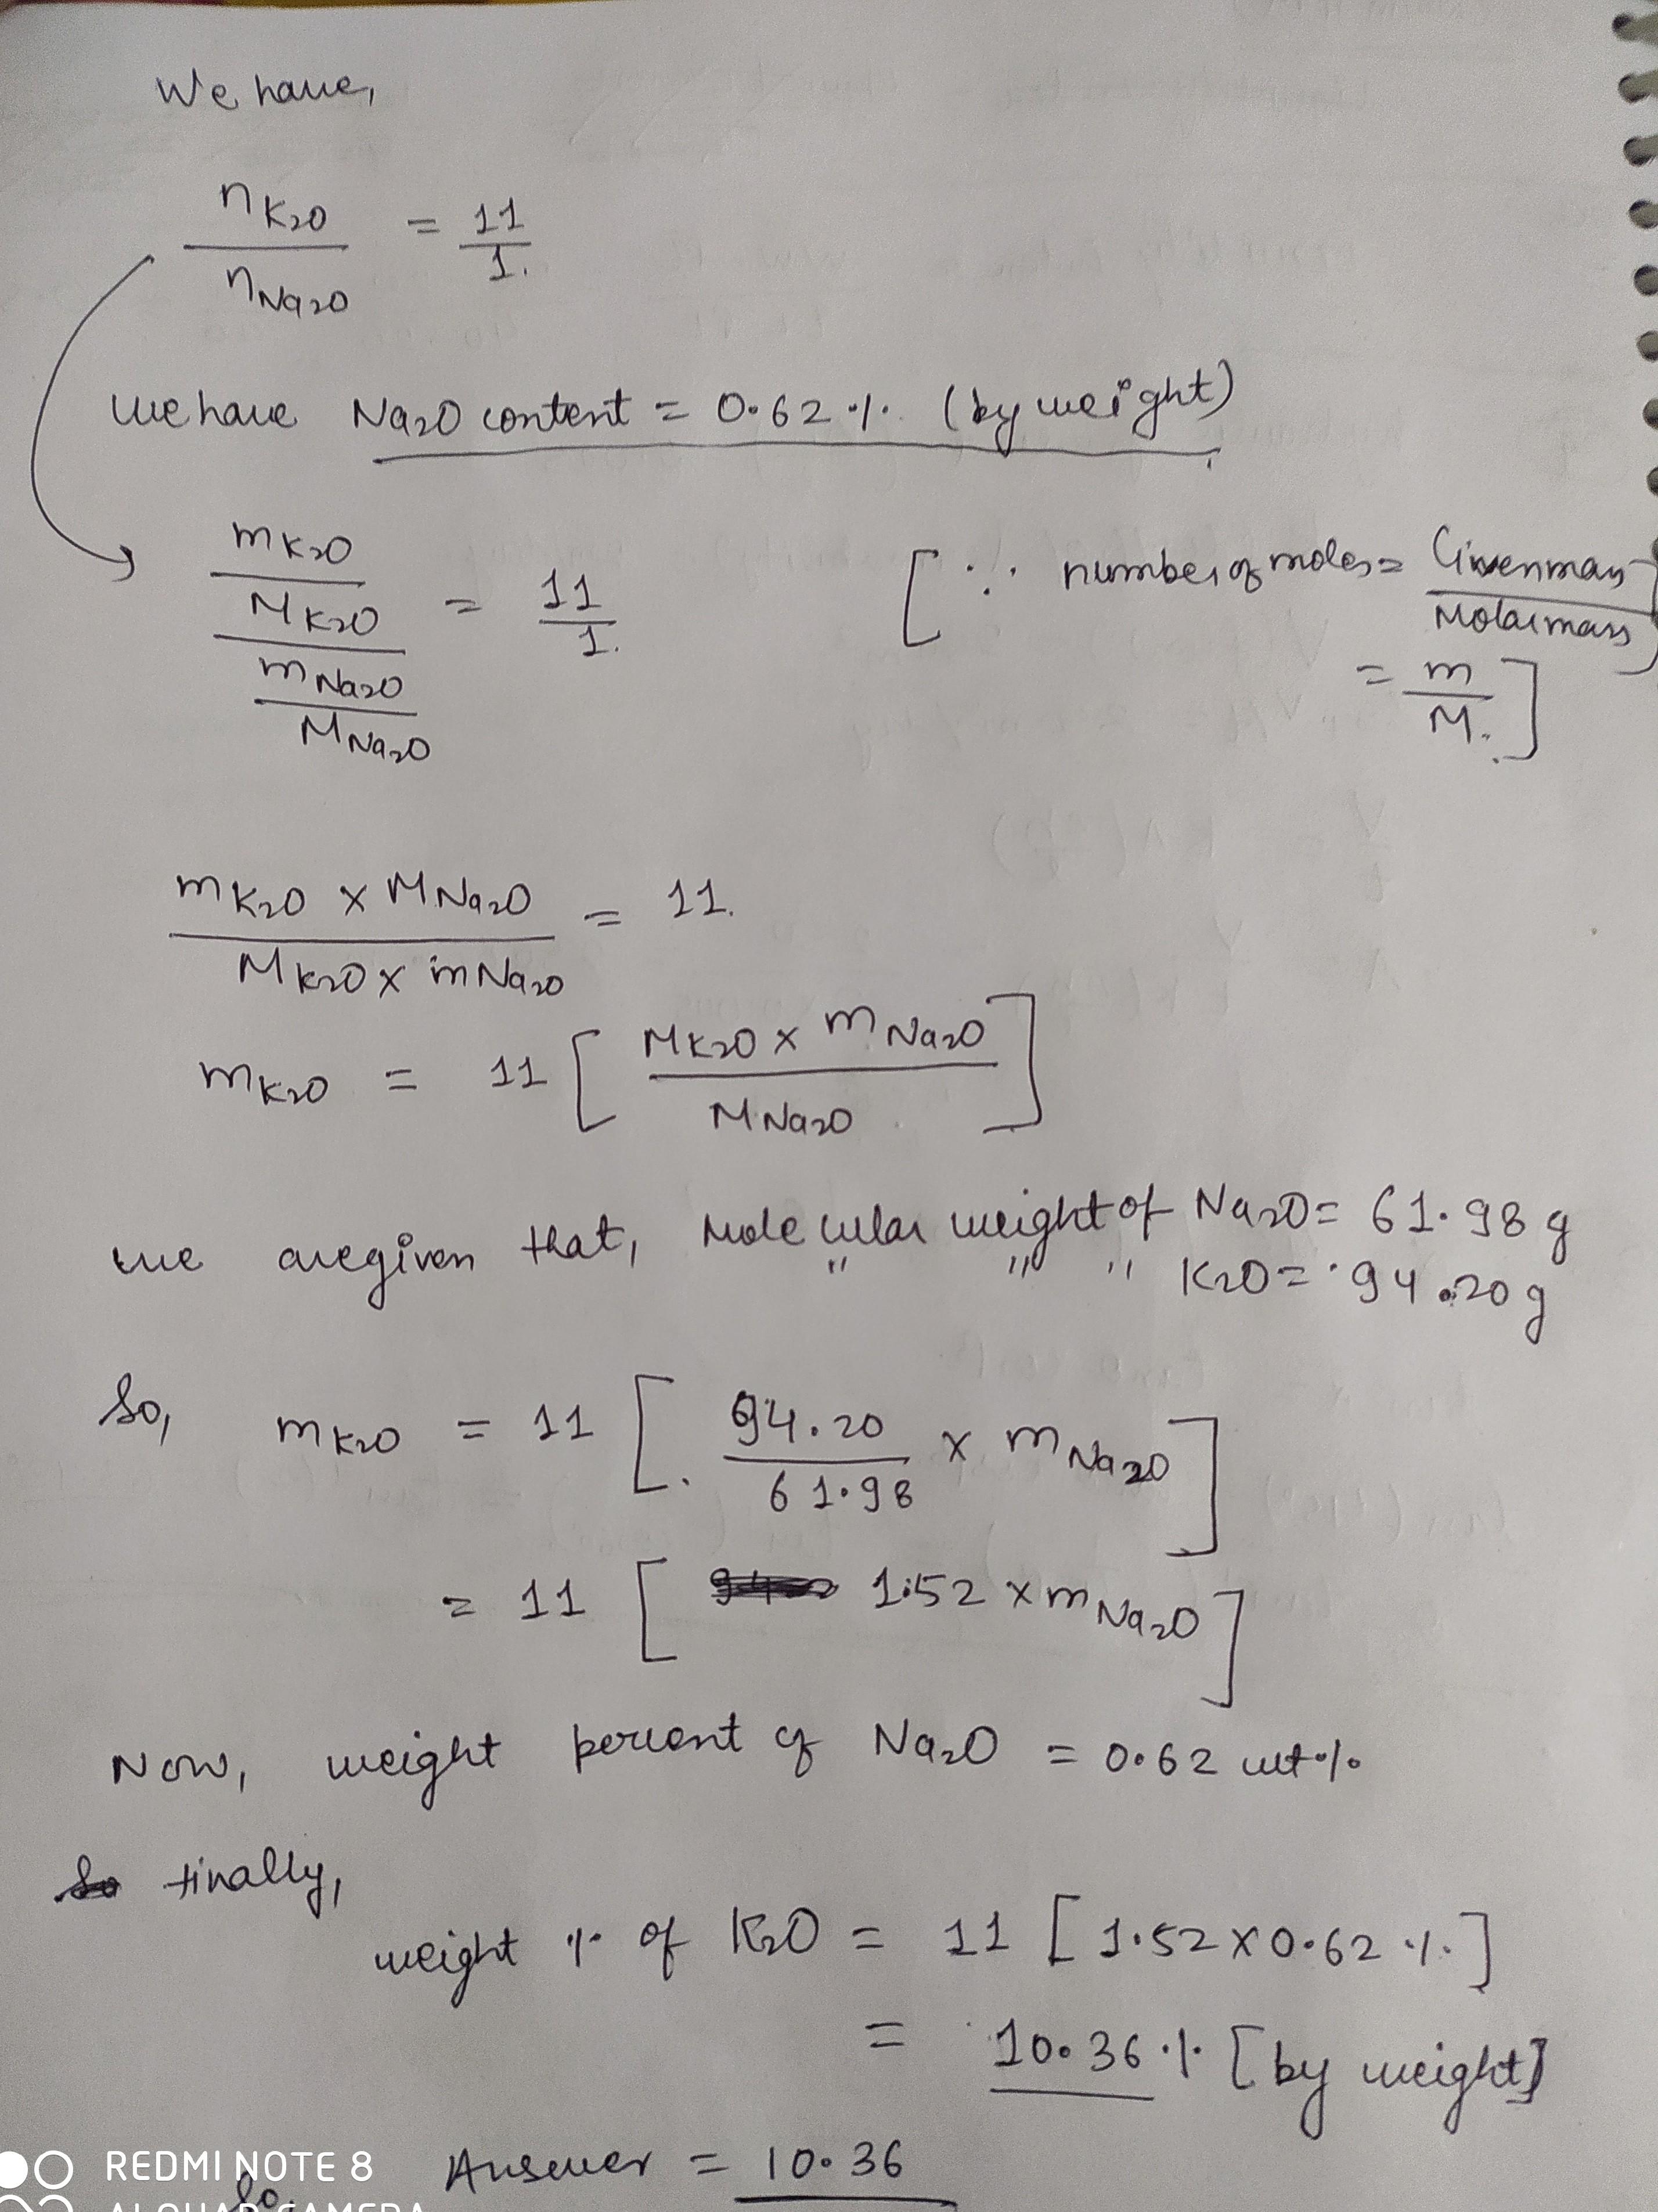 We have,
nK2O / nNa2O = 11 / 1.
We have Na2O content = 0.62 % (by weight)
mK2O / MK2O / mNa2O / MNa2O = 11 / 1. [∵ number of moles = Given mass / Molar mass
= m / M.]
mK2O × MNa2O / MK2O × mNa2O = 11.
mK2O = 11 [MK2O × mNa2O / MNa2O]
we are given that, Molecular weight of Na2O = 61.98 g
" " " K2O = 94.20 g
So, mK2O = 11 [94.20 / 61.98 × mNa2O]
= 11 [1.52 × mNa2O]
Now, weight percent of Na2O = 0.62 wt%
So finally,
weight % of K2O = 11 [1.52 × 0.62 %]
= 10.36 % [by weight]
So, Answer = 10.36
REDMI NOTE 8
AI QUAD CAMERA